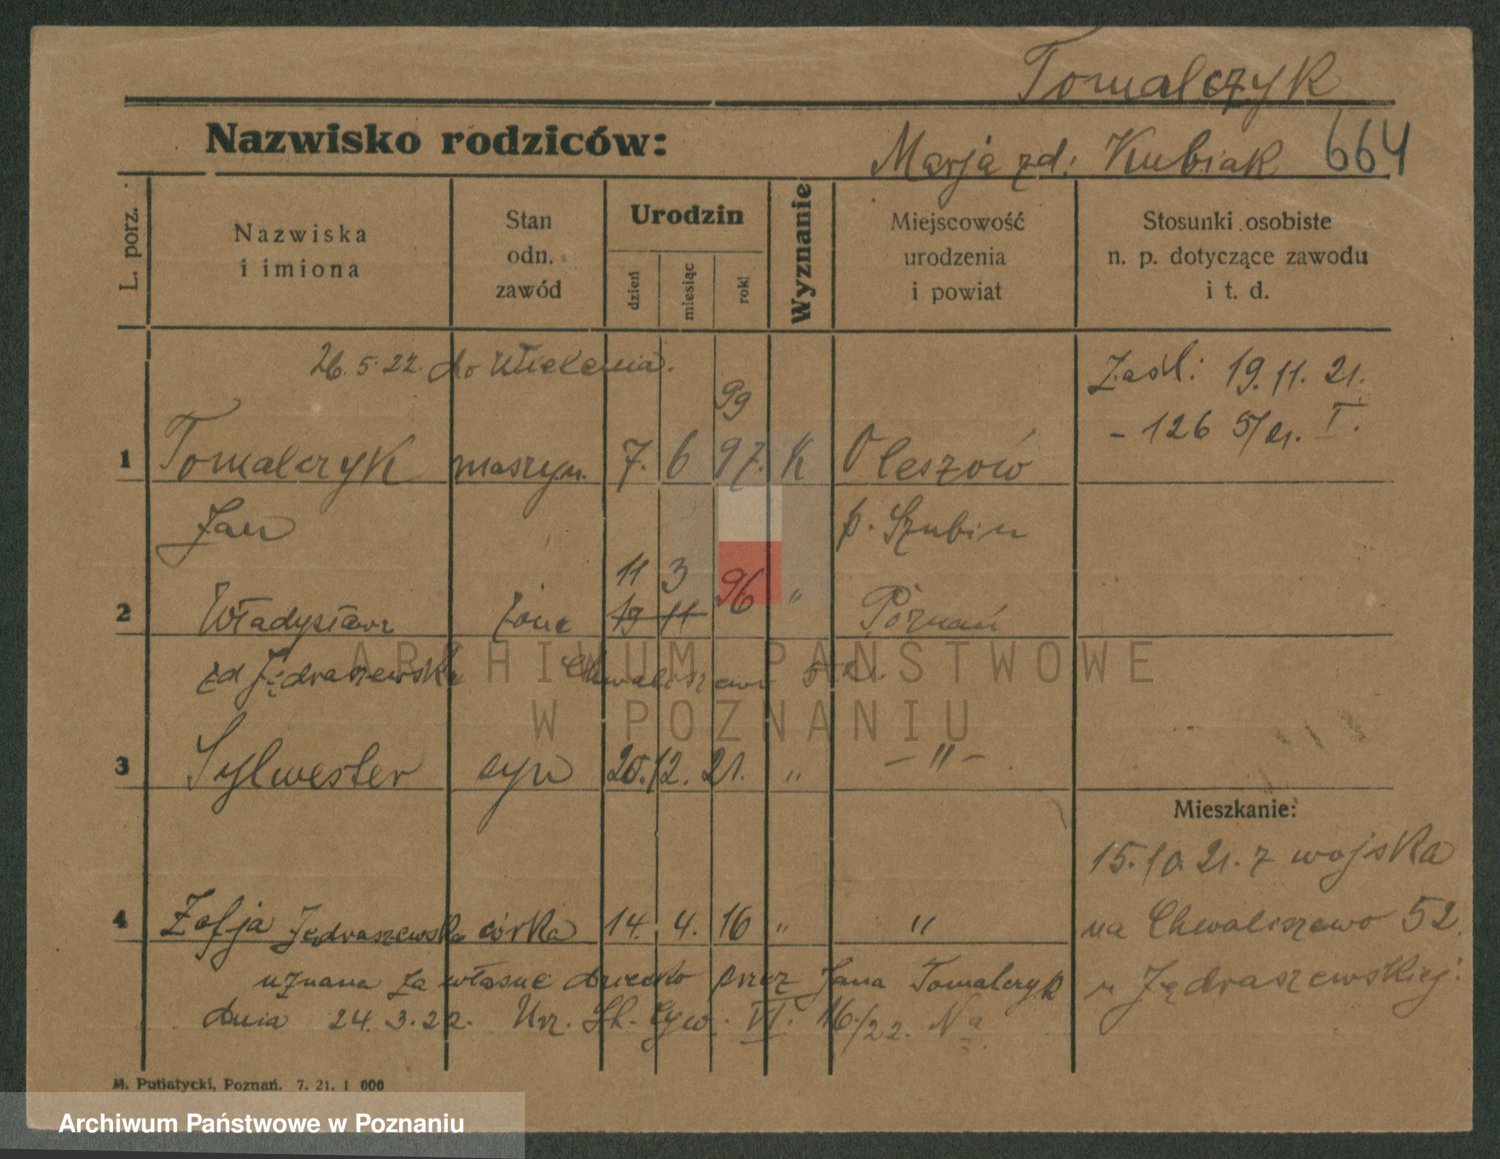 Tomalczyk
Nazwisko rodziców: Marja zd. Kubiak 664
L. porz.
Nazwiska
i imiona
Stan
odn.
zawód
Urodzin
dzień
miesiąc
rok
Wyznanie
Miejscowość
urodzenia
i powiat
Stosunki osobiste
n. p. dotyczące zawodu
i t. d.
26. 5. 22. do
Zaśl: 19. 11. 21.
- 126 5/21. I.
99
1 Tomalczyk maszyn. 7. 6 97. K Oleszów
Jan p. Szubin
11 3
2 Władysława żona 19 11 96 " Poznań
zd Jędraszewska Chwaliszewo 52.
3 Sylwester syn 20. 12. 21. " - " -
Mieszkanie:
15. 10. 21. z wojska
na Chwaliszewo 52.
u Jędraszewskiej.
4 Zofja Jędraszewska córka 14. 4. 16 " "
uznana za własne dziecko przez Jana Tomalczyk
dnia 24. 3. 22. Urz. St. Cyw. VI. 16/22. Na
M. Putiatycki, Poznań. 7. 21. 1 000
ARCHIWUM PAŃSTWOWE
W POZNANIU
Archiwum Państwowe w Poznaniu